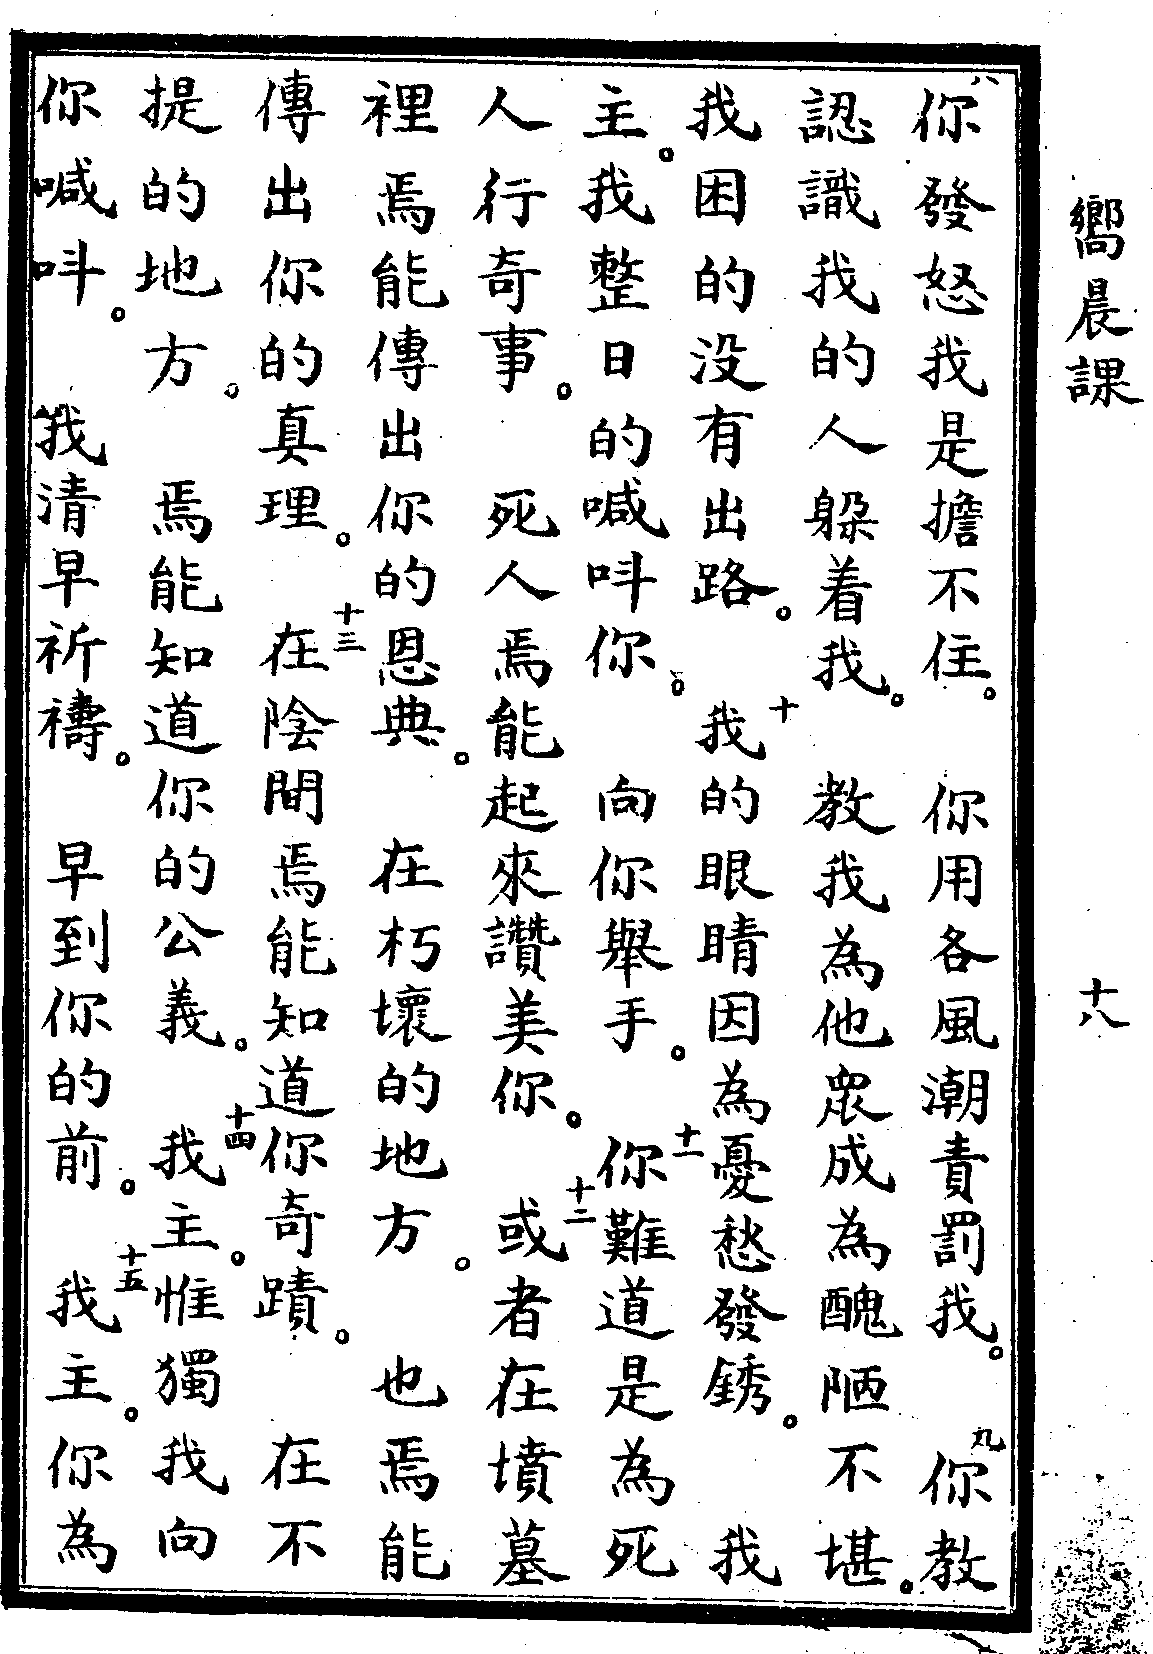 嚮晨課
十八
八你發怒我是擔不住。你用各風潮責罰我。九你教
認識我的人躲着我。教我為他眾成為醜陋不堪。
我困的没有出路。十我的眼睛因為憂愁發銹。我
主。我整日的喊呌你。向你舉手。十一你難道是為死
人行奇事。死人焉能起來讚美你。十二或者在墳墓
裡焉能傳出你的恩典。在朽壞的地方。也焉能
傳出你的真理。十三在陰間焉能知道你奇蹟。在不
提的地方。焉能知道你的公義。十四我主。惟獨我向
你喊呌。我清早祈禱。早到你的前。十五我主。你為